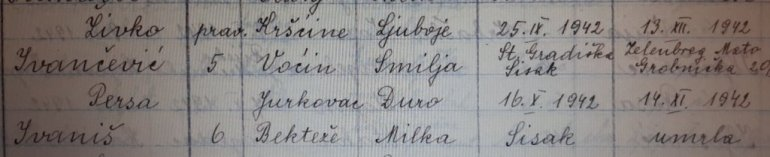 Živko prav. Kršćine Ljuboje 25. IX. 1942 13. XII. 1942
Ivančević 5 Voćin Smilja St. Gradiška Sisak Zelenbreg Mato Grobnička 20
Persa Jurkovac Đuro 16. X. 1942 14. XI. 1942
Ivaniš 6 Bekteže Milka Sisak umrla